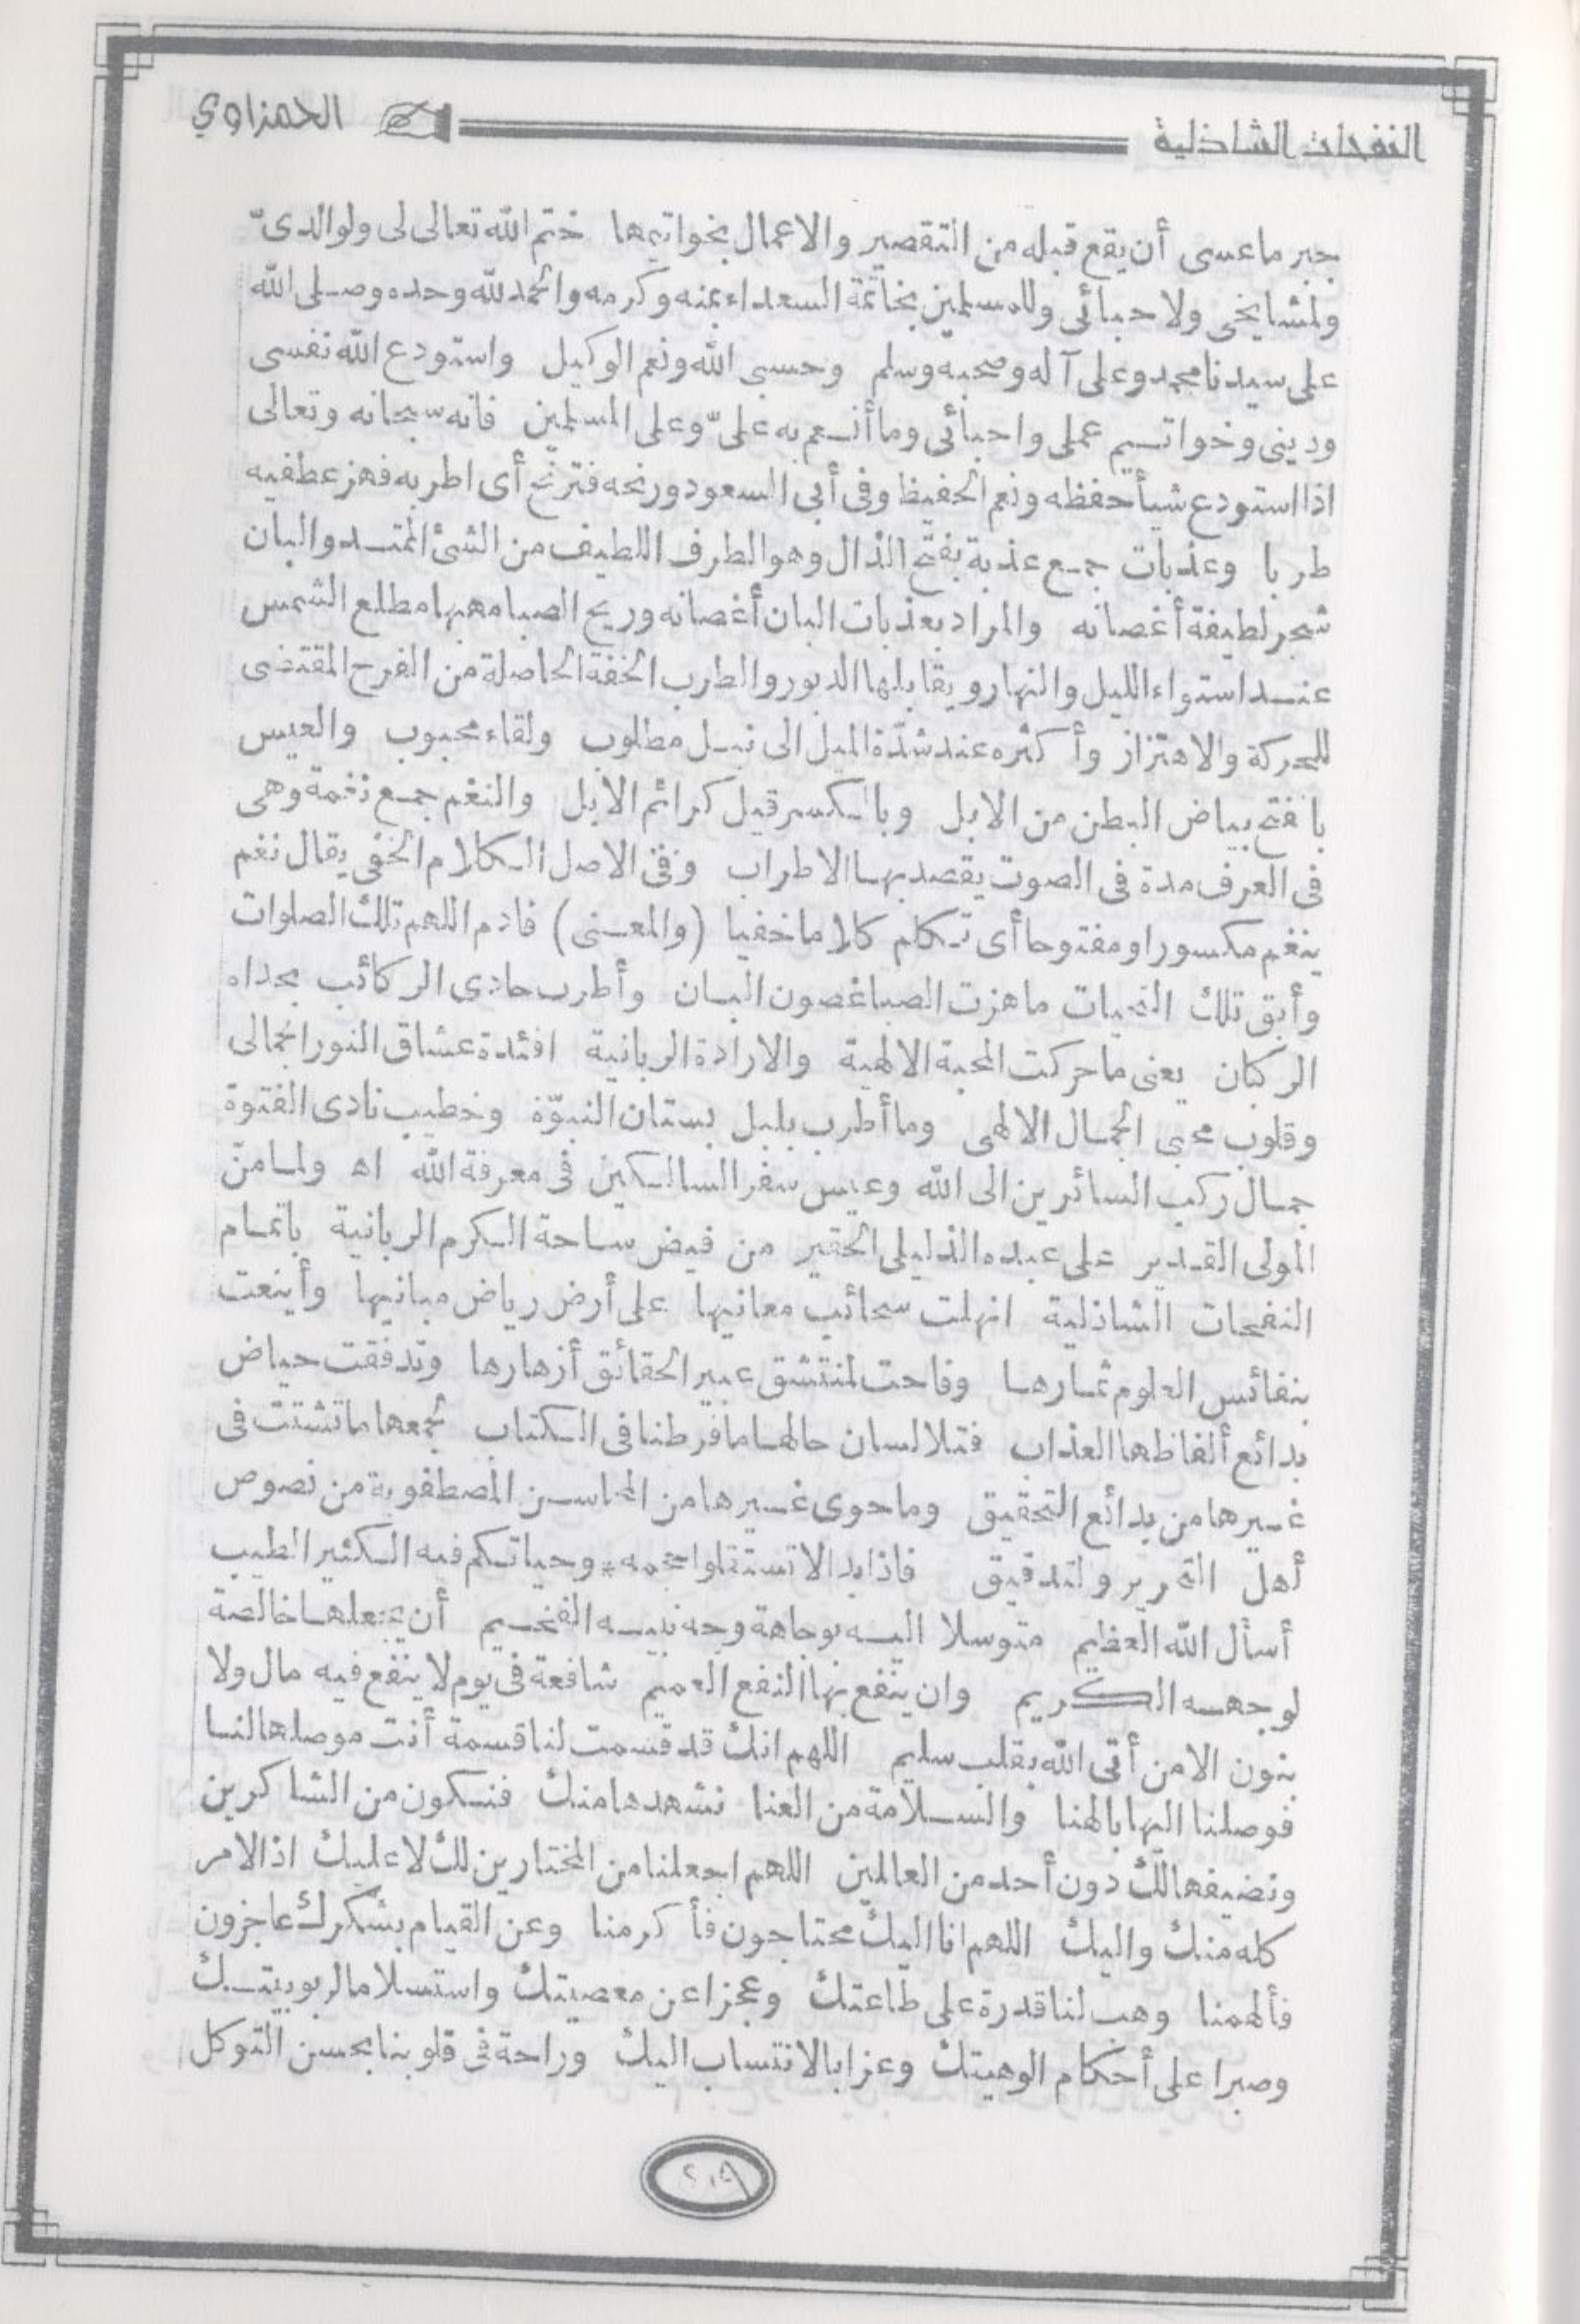 النفحات الشاذلية
الحمزاوي
جبر ما عسى أن يقع قبله من التقصير والاعمال بخواتيمها ختم الله تعالى لى ولوالدىّ
ولمشايخى ولاحبائى وللمسلمين بخاتمة السعداء بمنه وكرمه والحمد لله وحده وصلى الله
على سيدنا محمد وعلى آله وصحبه وسلم وحسبى الله ونعم الوكيل واستودع الله نفسى
ودينى وخواتيم عملى واحبائى وما أنعم به علىّ وعلى المسلمين فانه سبحانه وتعالى
اذا استودع شيأ حفظه ونعم الحفيظ وفى أبى السعود ورنحه فترنح أى اطربه فهز عطفيه
طربا وعذبات جمع عذبة بفتح الذال وهو الطرف اللطيف من الشئ الممتد والبان
شجر لطيفة أغصانه والمراد بعذبات البان أغصانه وريح الصبا مهبها مطلع الشمس
عند استواء الليل والنهار ويقابلها الدبور والطرب الخفة الحاصلة من الفرح المقتضى
للحركة والاهتزاز وأكثره عند شدّة الميل الى نيل مطلوب ولقاء محبوب والعيس
بالفتح بياض البطن من الابل وبالكسر قيل كرائم الابل والنغم جمع نغمة وهى
فى العرف مدة فى الصوت يقصد بها الاطراب وفى الاصل الكلام الخفى يقال نغم
ينغم مكسورا ومفتوحا أى تكلم كلاما خفيا (والمعنى) فادم اللهم تلك الصلوات
وأبق تلك التحيات ما هزت الصبا غصون البان وأطرب حادى الركائب بحداه
الركبان يعنى ما حركت المحبة الالهية والارادة الربانية افئدة عشاق النور الجمالى
وقلوب محبى الجمال الالهى وما أطرب بلبل بستان النبوّة وخطيب نادى الفتوة
جمال ركب السائرين الى الله وعيس سفر السالكين فى معرفة الله اه ولما منّ
المولى القدير على عبده الذليل الحقير من فيض ساحة الكرم الربانية باتمام
النفحات الشاذلية انهلت سحائب معانيها على أرض رياض مبانيها وأينعت
بنفائس العلوم ثمارها وفاحت لمنتشق عبير الحقائق أزهارها وتدفقت حياض
بدائع ألفاظها العذاب فتلا لسان حالها ما فرطنا فى الكتاب لجمعها ما تشتت فى
غيرها من بدائع التحقيق وما حوى غيرها من المحاسن المصطفوية من نصوص
أهل التحرير والتدقيق فاذا بدا لا تستقلوا حجمه * وحياتكم فيه الكثير الطيب
أسأل الله العظيم متوسلا اليه بوجاهة وجه نبيه الفخيم أن يجعلها خالصة
لوجهه الكريم وان ينفع بها النفع العميم شافعة فى يوم لا ينفع فيه مال ولا
بنون الا من أتى الله بقلب سليم اللهم انك قد قسمت لنا قسمة أنت موصلها لنا
فوصلنا اليها بالهنا والسلامة من العنا نشهدها منك فنكون من الشاكرين
ونضيفها لك دون أحد من العالمين اللهم اجعلنا من المختارين لك لا عليك اذ الامر
كله منك واليك اللهم انا اليك محتاجون فأكرمنا وعن القيام بشكرك عاجزون
فألهمنا وهب لنا قدرة على طاعتك وعجزا عن معصيتك واستسلاما لربوبيتك
وصبرا على أحكام الوهيتك وعزا بالانتساب اليك وراحة فى قلوبنا بحسن التوكل